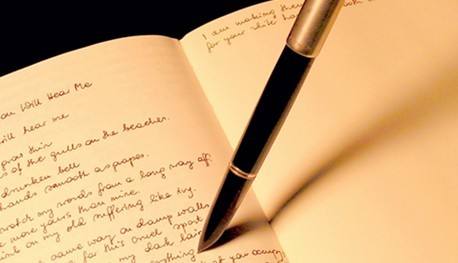 ou Will Hear Me
will hear me
thin
s of the gulls on the beaches.
drunken bell
hands smooth as grapes.
watch my words from a long way off.
e more yours than mine.
imb on my old suffering like ivy.
same way on damp walls
for this cruel sport
my dark lair
erything
you occupy
I am making them
for your white ha